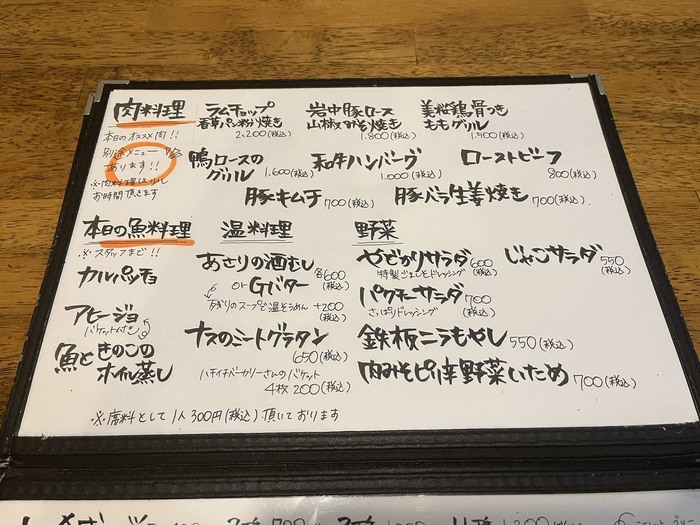 肉料理
本日のオススメ肉!!
別途メニュー
あります!!
※肉料理は少し
お時間頂きます
ラムチョップ
香草パン粉焼き
2,200(税込)
岩中豚ロース
山椒みそ焼き
1,800(税込)
美桜鶏骨つき
ももグリル
1,500(税込)
鴨ロースの
グリル 1,600(税込)
和牛ハンバーグ
1,000(税込)
ローストビーフ
800(税込)
豚キムチ 700(税込)
豚バラ生姜焼き 700(税込)
本日の魚料理
※スタッフまで!!
カルパッチョ
アヒージョ
バケット付き
魚ときのこの
ホイル蒸し
温料理
あさりの酒むし
or Gバター
各600(税込)
残りのスープで温そうめん +200(税込)
ナスのミートグラタン
650(税込)
ハチイチベーカリーさんのバケット
4枚 200(税込)
野菜
やどかりサラダ 600(税込)
特製ごまとドレッシング
じゃこサラダ 550(税込)
パクチーサラダ 700(税込)
さっぱりドレッシング
鉄板ニラもやし 550(税込)
肉みそピリ辛野菜いため 700(税込)
※席料として1人300円(税込)頂いております